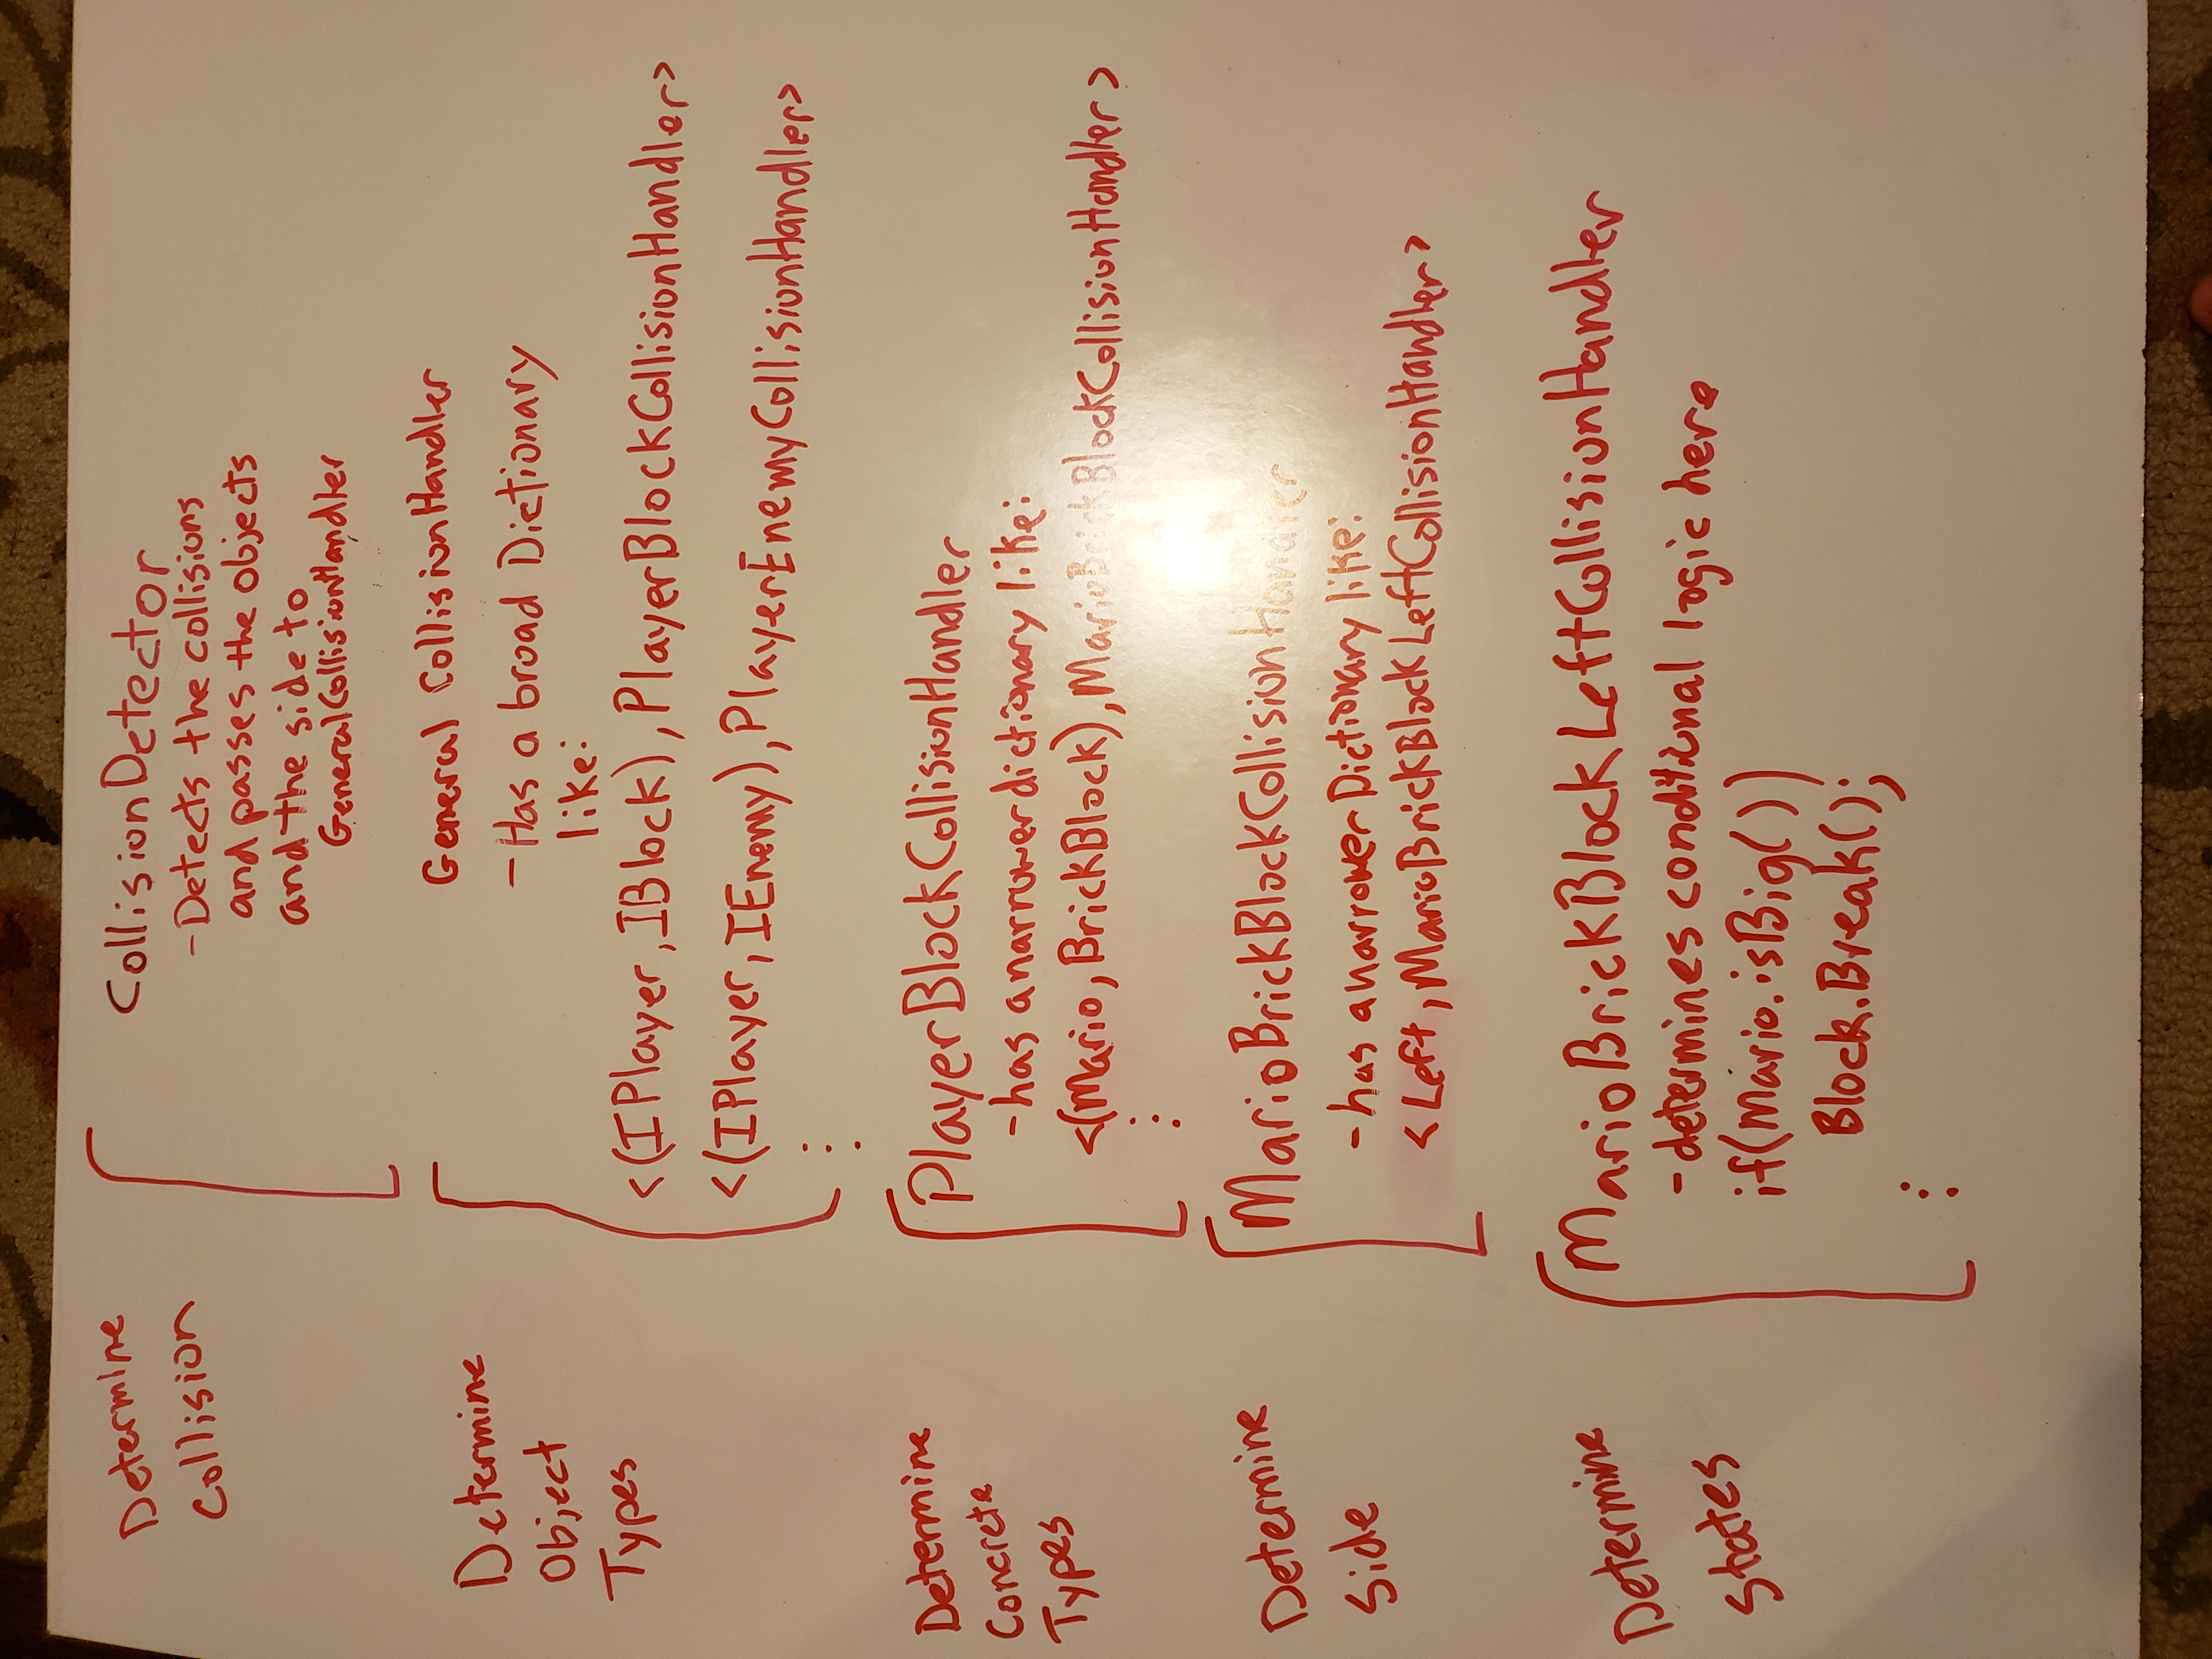 Determine
Collision
CollisionDetector
-Detects the collisions
and passes the objects
and the side to
GeneralCollisionHandler
Determine
Object
Types
General CollisionHandler
-Has a broad Dictionary
like:
<(IPlayer,IBlock),PlayerBlockCollisionHandler>
<(IPlayer,IEnemy),PlayerEnemyCollisionHandler>
⋮
Determine
Concrete
Types
PlayerBlockCollisionHandler
-has a narrower dictionary like:
<(Mario,BrickBlock),MarioBrickBlockCollisionHandler>
⋮
Determine
Side
MarioBrickBlockCollisionHandler
-has a narrower Dictionary like:
<Left,MarioBrickBlockLeftCollisionHandler>
Determine
States
MarioBrickBlockLeftCollisionHandler
-determines conditional logic here
if(Mario.isBig())
Block.Break();
⋮